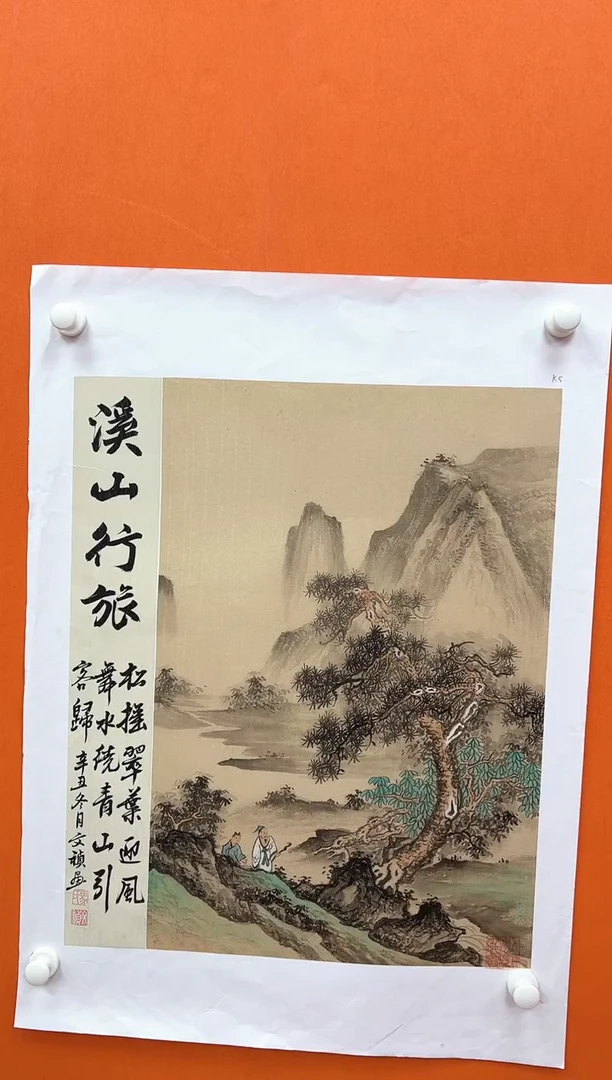 溪山行旅
松摇翠葉迎風
舞水繞青山引
客歸
辛丑冬月文禎畫
K5